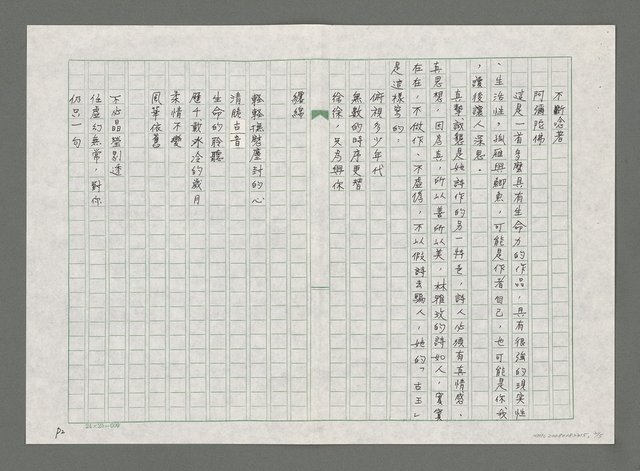 不斷念着
阿彌陀佛
這是一首多麼具有生命力的作品,具有很強的現實性
、生活性,孤雁與鯽魚,可能是作者自己,也可能是你我
,讀後讓人深思。
真摯誠懇是她詩作的另一特色,詩人必須有真情感、
真思想,因為真,所以善所以美,林雅玟的詩如人,實實
在在,不做作、不虛偽,不以做詩去騙人,她的「古玉」
是這樣寫的:
俯視多少年代
無數的時序更替
徐徐,只為與你
纏綿
輕輕撫慰塵封的心
清脆古音
生命的聆聽
歷千載冰冷的歲月
柔情不變
風華依舊
不必晶瑩剔透
任虛幻無常,對你
仍只一句
24×25=600
P2